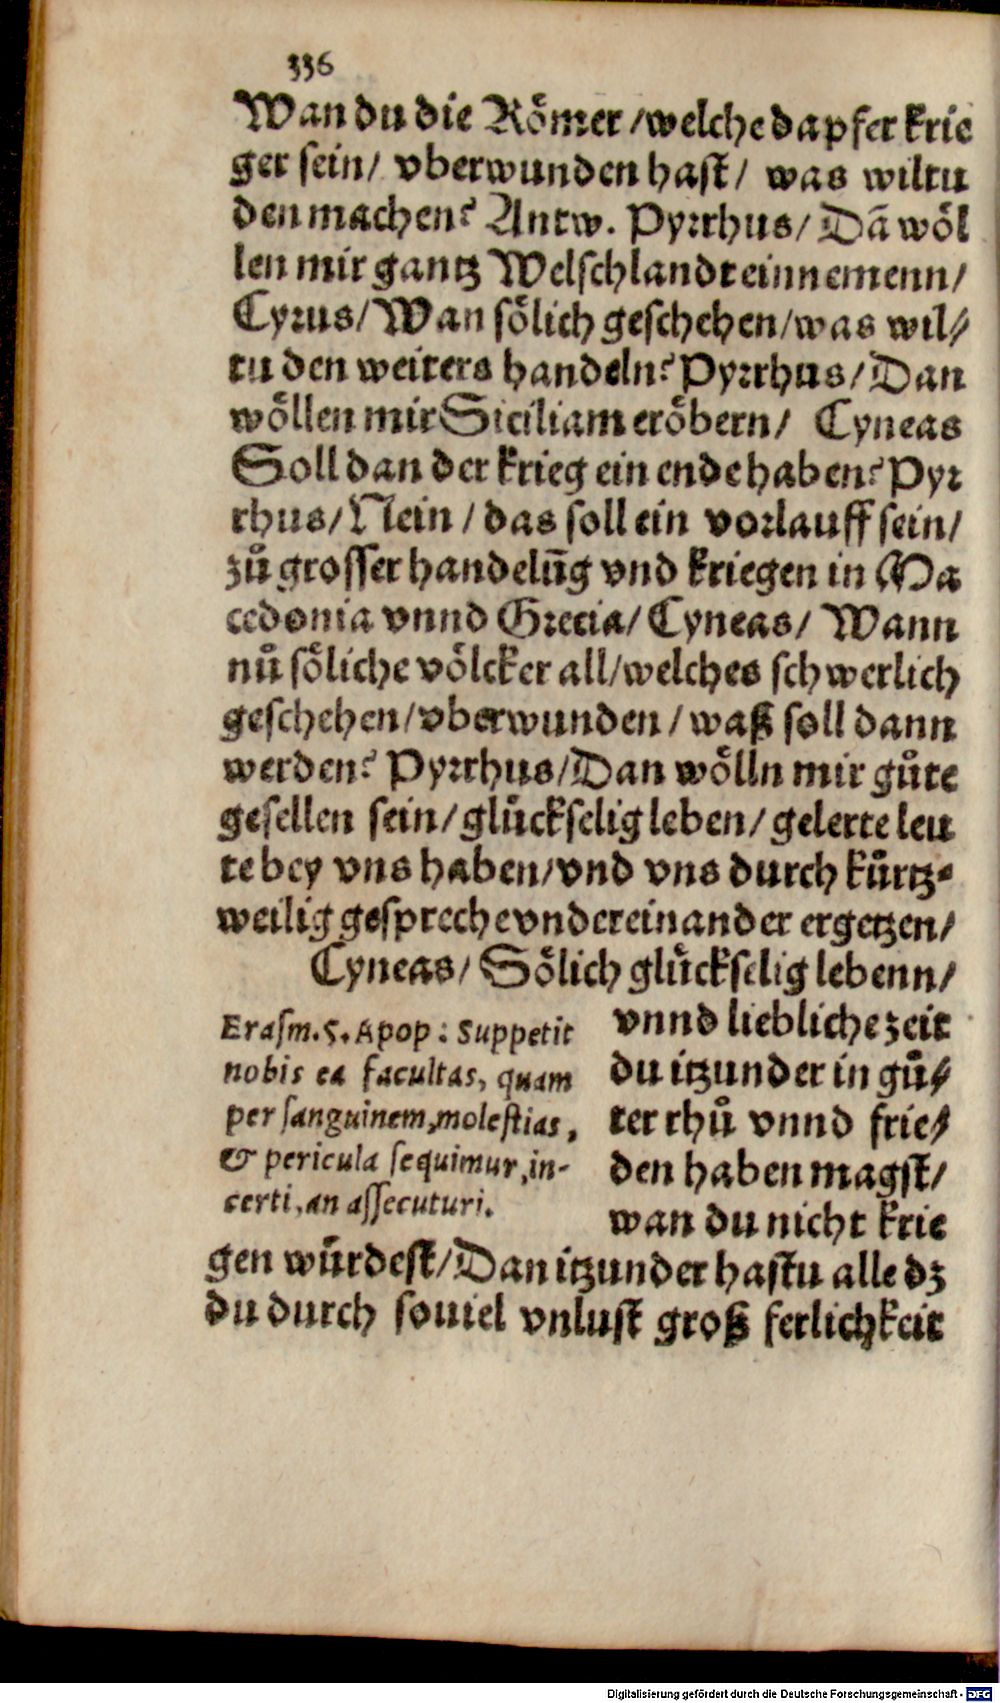 336
Wan du die Roͤmer / welche dapfer krie
ger sein / vberwunden hast / was wiltu
den machen? Antw. Pyrrhus / Dā woͤl
len mir gantz Welschlandt einnemenn /
Cyrus / Wan soͤlich geschehen / was wil⸗
tu den weiters handeln? Pyrrhus / Dan
woͤllen mir Siciliam eroͤbern / Cyneas
Soll dan der krieg ein ende haben? Pyr
rhus / Nein / das soll ein vorlauff sein /
zuͦ grosser handelūg vnd kriegen in Ma
cedonia vnnd Grecia / Cyneas / Wann
nuͦ soͤliche voͤlcker all / welches schwerlich
geschehen / vberwunden / waß soll dann
werden? Pyrrhus / Dan woͤlln mir guͦte
gesellen sein / gluͤckselig leben / gelerte leu
te bey vns haben / vnd vns durch kuͤrtz⸗
weilig gespreche vndereinander ergetzen /
Cyneas / Soͤlich gluͤckselig lebenn /
vnnd liebliche zeit
du itzunder in guͦ⸗
ter rhuͦ vnnd frie⸗
den haben magst /
wan du nicht krie
Erasm. 5. Apop: Suppetit
nobis ea facultas, quam
per sanguinem, molestias,
& pericula sequimur, in-
certi, an assecuturi.
gen wuͤrdest / Dan itzunder hastu alle dz
du durch souiel vnlust groß ferlichkeit
Digitalisierung gefördert durch die Deutsche Forschungsgemeinschaft - DFG